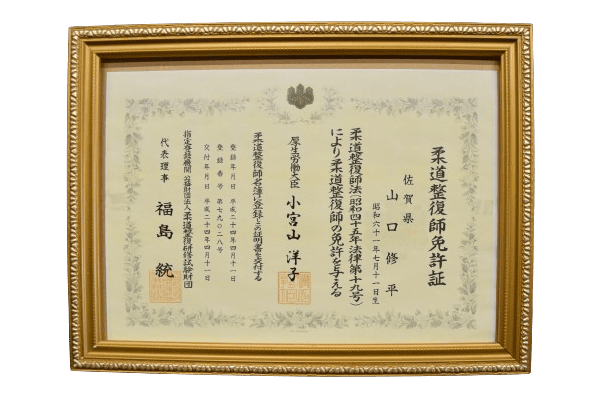 柔道整復師免許証
佐賀県
山口修平
昭和六十一年七月十一日生
柔道整復師法(昭和四十五年法律第十九号)
により柔道整復師の免許を与える
厚生労働大臣 小宮山洋子
柔道整復師名簿に登録しこの証明書を交付する
登録年月日 平成二十四年四月十一日
登録番号 第七九〇二八号
交付年月日 平成二十四年四月十一日
指定登録機関 公益財団法人柔道整復研修試験財団
代表理事 福島統